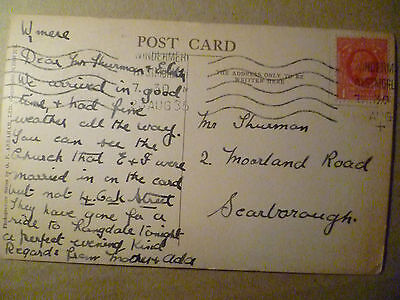 W'mere
POST CARD
THE ADDRESS ONLY TO BE
WRITTEN HERE
WINDERMERE
AUG 36
WINDERMERE
AUG
Dear Mr Shurman &
We arrived in good
time, & had fine
weather all the way.
You can see the
Church that E & F were
married in on the card
but not 4 Oak Street
They have gone for a
ride to Langdale tonight
a perfect evening Kind
Regards from Mother & Ada
Mr Shurman
2, Moorland Road
Scarborough.